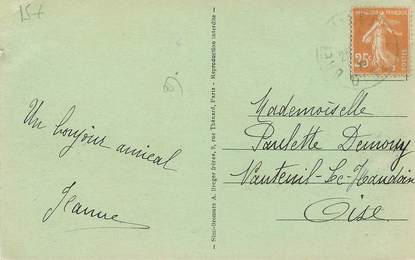 15+
Un bonjour amical
Jeanne
Simi-Bromure A. Breger frères, 9, rue Thénard, Paris - Reproduction interdite -
25c
POSTES
Mademoiselle
Paulette Demouy
Nanteuil-Le-Haudoin
Oise